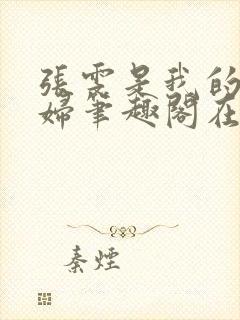 張雲是我的
婦筆趣閣在
秦煙